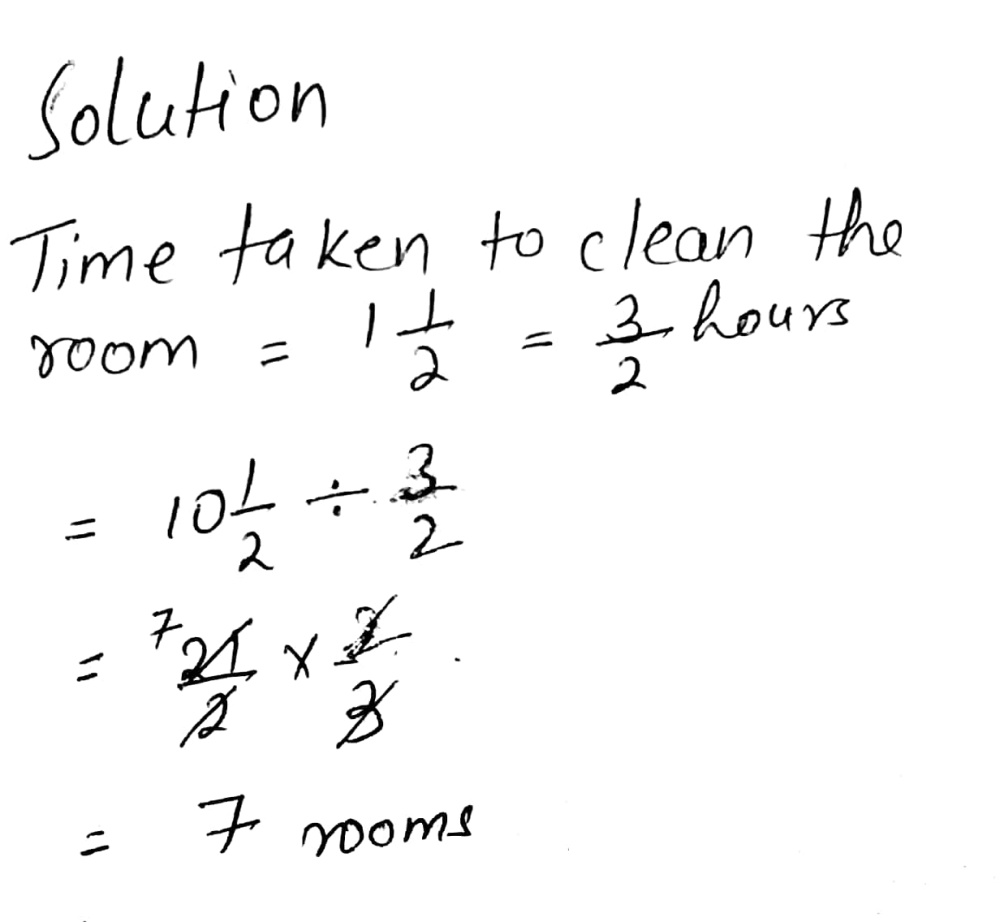 Solution
Time taken to clean the
room = 1 1/2 = 3/2 hours
= 10 1/2 ÷ 3/2
= 7 21/2 × 2/3
= 7 rooms